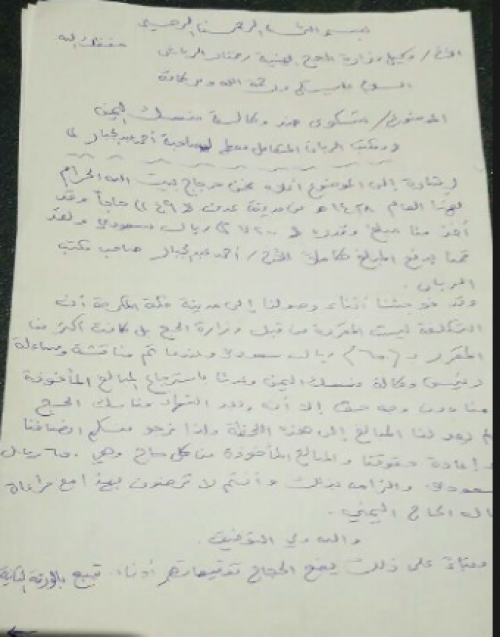 بسم الله الرحمن الرحيم
الأخ / وكيل وزارة الحج حفظك الله
السلام عليكم ورحمة الله وبركاته
الموضوع / شكوى ضد وكالة منسك اليمن
ومكتب الريان لصاحبه أحمد عبدالجبار
إشارة إلى الموضوع أعلاه نحن حجاج بيت الله الحرام
لهذا العام ١٤٣٨ هـ من مدينة عدن حاجاً وقد
أخذ منا مبلغ وقدره ريال سعودي ولقد
قمنا بدفع المبلغ كاملاً للأخ / أحمد عبدالجبار صاحب مكتب
الريان .
وقد فوجئنا أثناء وصولنا إلى مدينة مكة المكرمة أن
التكلفة ليست المقررة من قبل وزارة الحج بل كانت أكثر من
المقرر بـ (٦٥٠) ريال سعودي وعندما تم مناقشة ومساءلة
رئيس وكالة منسك اليمن وعدنا باسترجاع المبالغ المأخوذة
منا بدون وجه حق إلا أن بعد انتهاء مناسك الحج
لم يعد لنا المبالغ إلى هذه اللحظة ولذا نرجو منكم إنصافنا
وإعادة حقوقنا والمبالغ المأخوذة من كل حاج وهي ٦٥٠ ريال
سعودي وأنتم لا ترضون بهذا مع مراعاة
حال الحاج اليمني .
والله ولي التوفيق .
وبناءً على ذلك يضع الحجاج توقيعاتهم أدناه . تتبع بالورقة الثانية